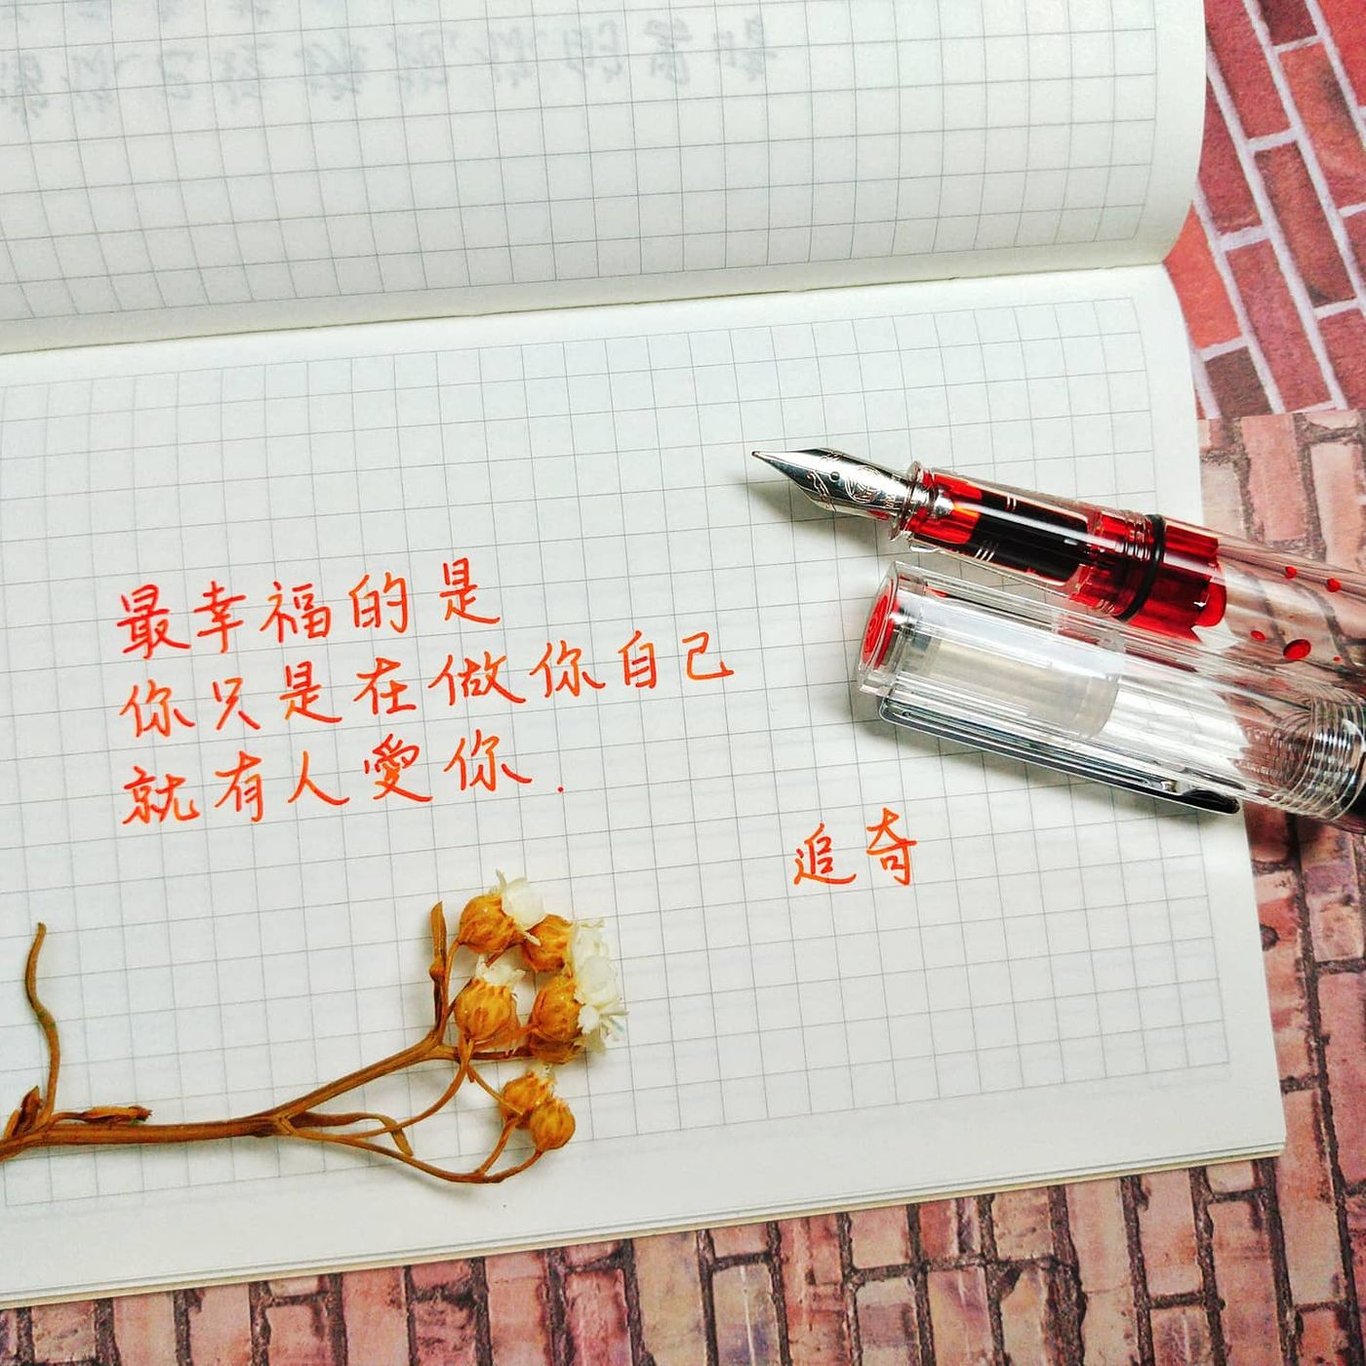 最幸福的是
你只是在做你自己
就有人愛你.
追奇